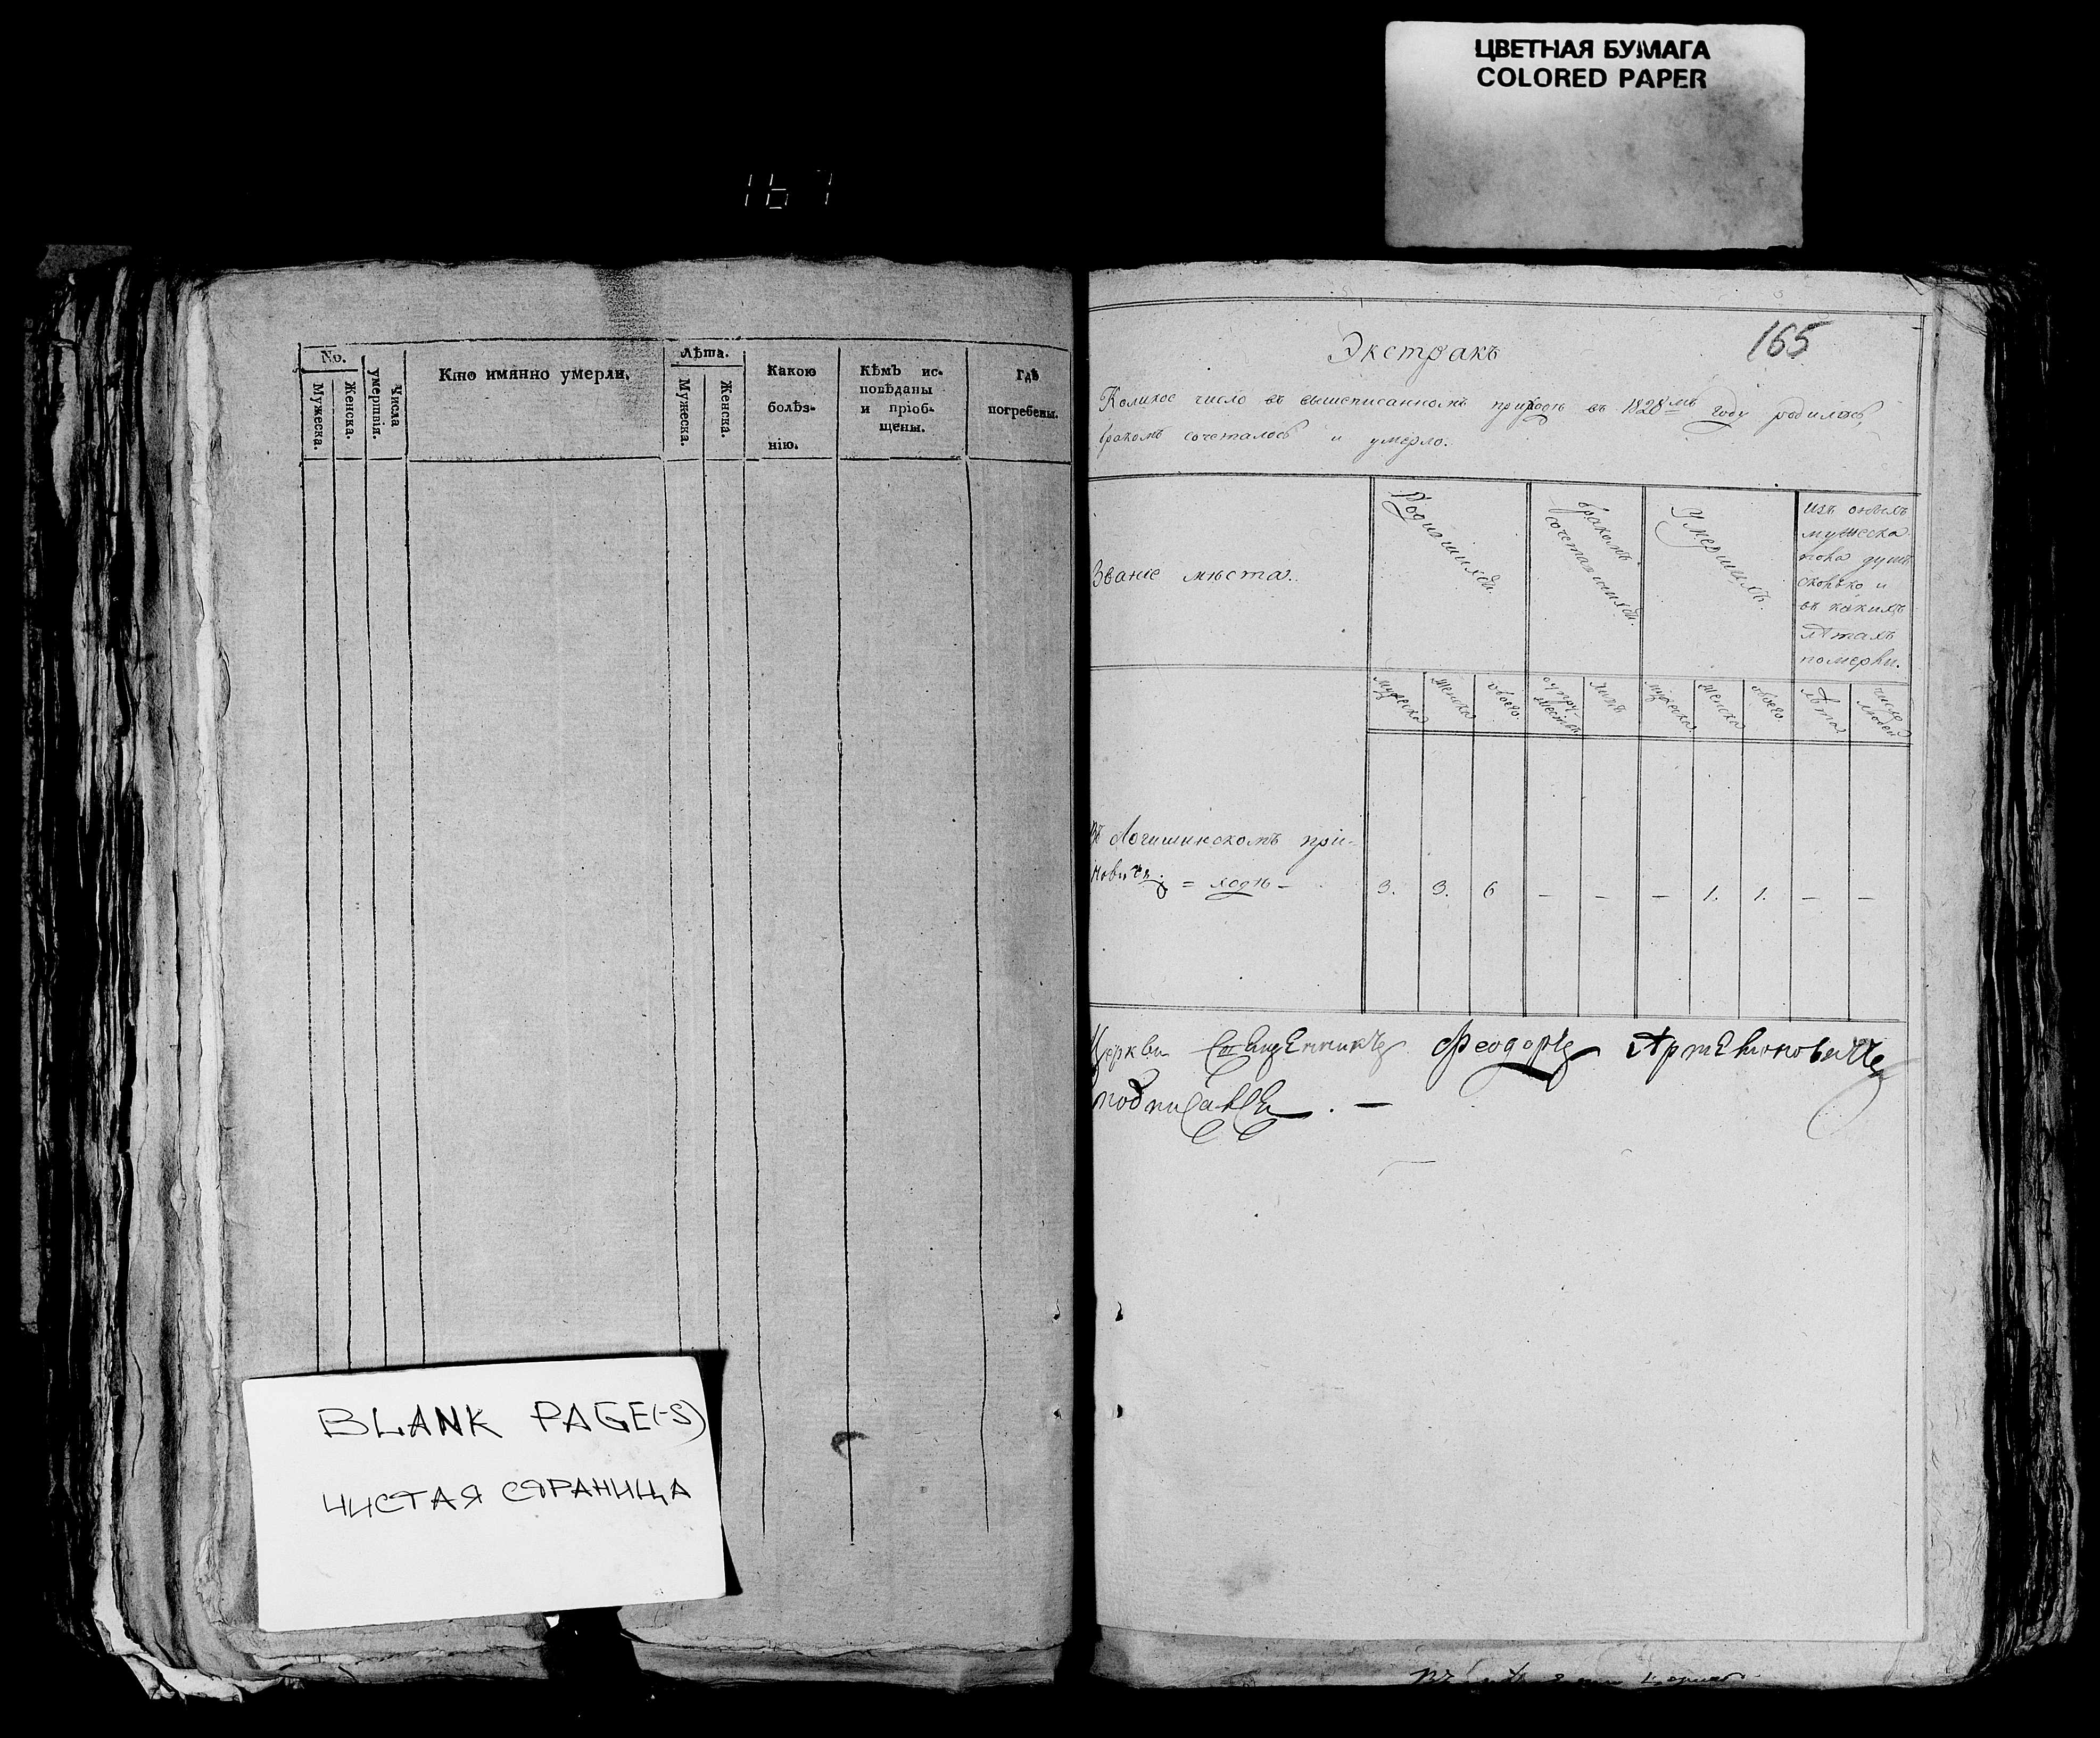 ЦВЕТНАЯ БУМАГА
COLORED PAPER
167
No.
Мужеска.
Женска.
Числа умершія.
Кто имянно умерли.
Лѣта.
Мужеска.
Женска.
Какою
болѣз-
нію.
Кѣмъ ис-
повѣданы
и пріоб-
щены.
Гдѣ
погребены.
BLANK PAGE(-S)
ЧИСТАЯ СТРАНИЦА
165
Экстракъ
Коликое число въ вышеписанномъ приходѣ въ 1828мъ году родилось,
бракомъ сочеталось и умерло.
Званіе мѣста.
Родившихся.
бракомъ сочетавшихся.
Умершихъ.
изъ оныхъ
мужеска
пола душъ
сколько и
въ какихъ
лѣтахъ
померли.
мужеска
женска
обоего.
супружествъ
мужеска
женска
обоего.
лѣта
число людей
Въ Логишинскомъ при-
= ходѣ –
3. 3. 6 – – – 1. 1. – –
Церкви Священникъ Феодоръ Артемоновичъ
подписался . –